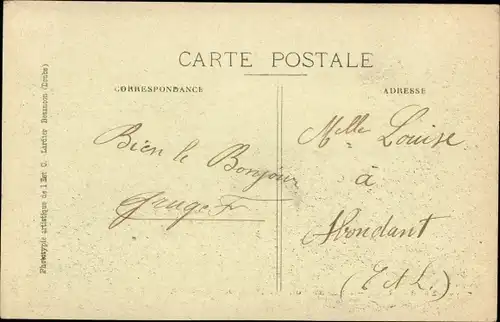 CARTE POSTALE
CORRESPONDANCE
ADRESSE
Phototypie artistique de l'Est C. Lardier Besançon (Doubs)
Bien le Bonjour
Mlle Louise
à
Abondant
(E et L.)